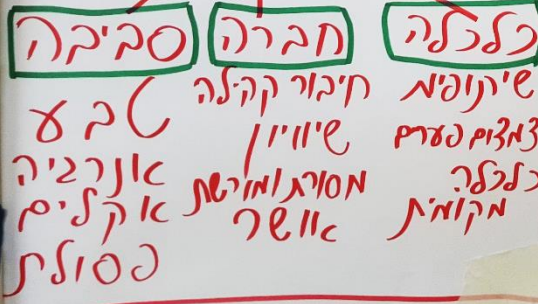 כלכלה
שיתופית
צמצום פערים
כלכלה
מקומית
חברה
חיבור קהילה
שיוויון
מסורת ומורשת
אושר
סביבה
טבע
אנרגיה
אקלים
פסולת